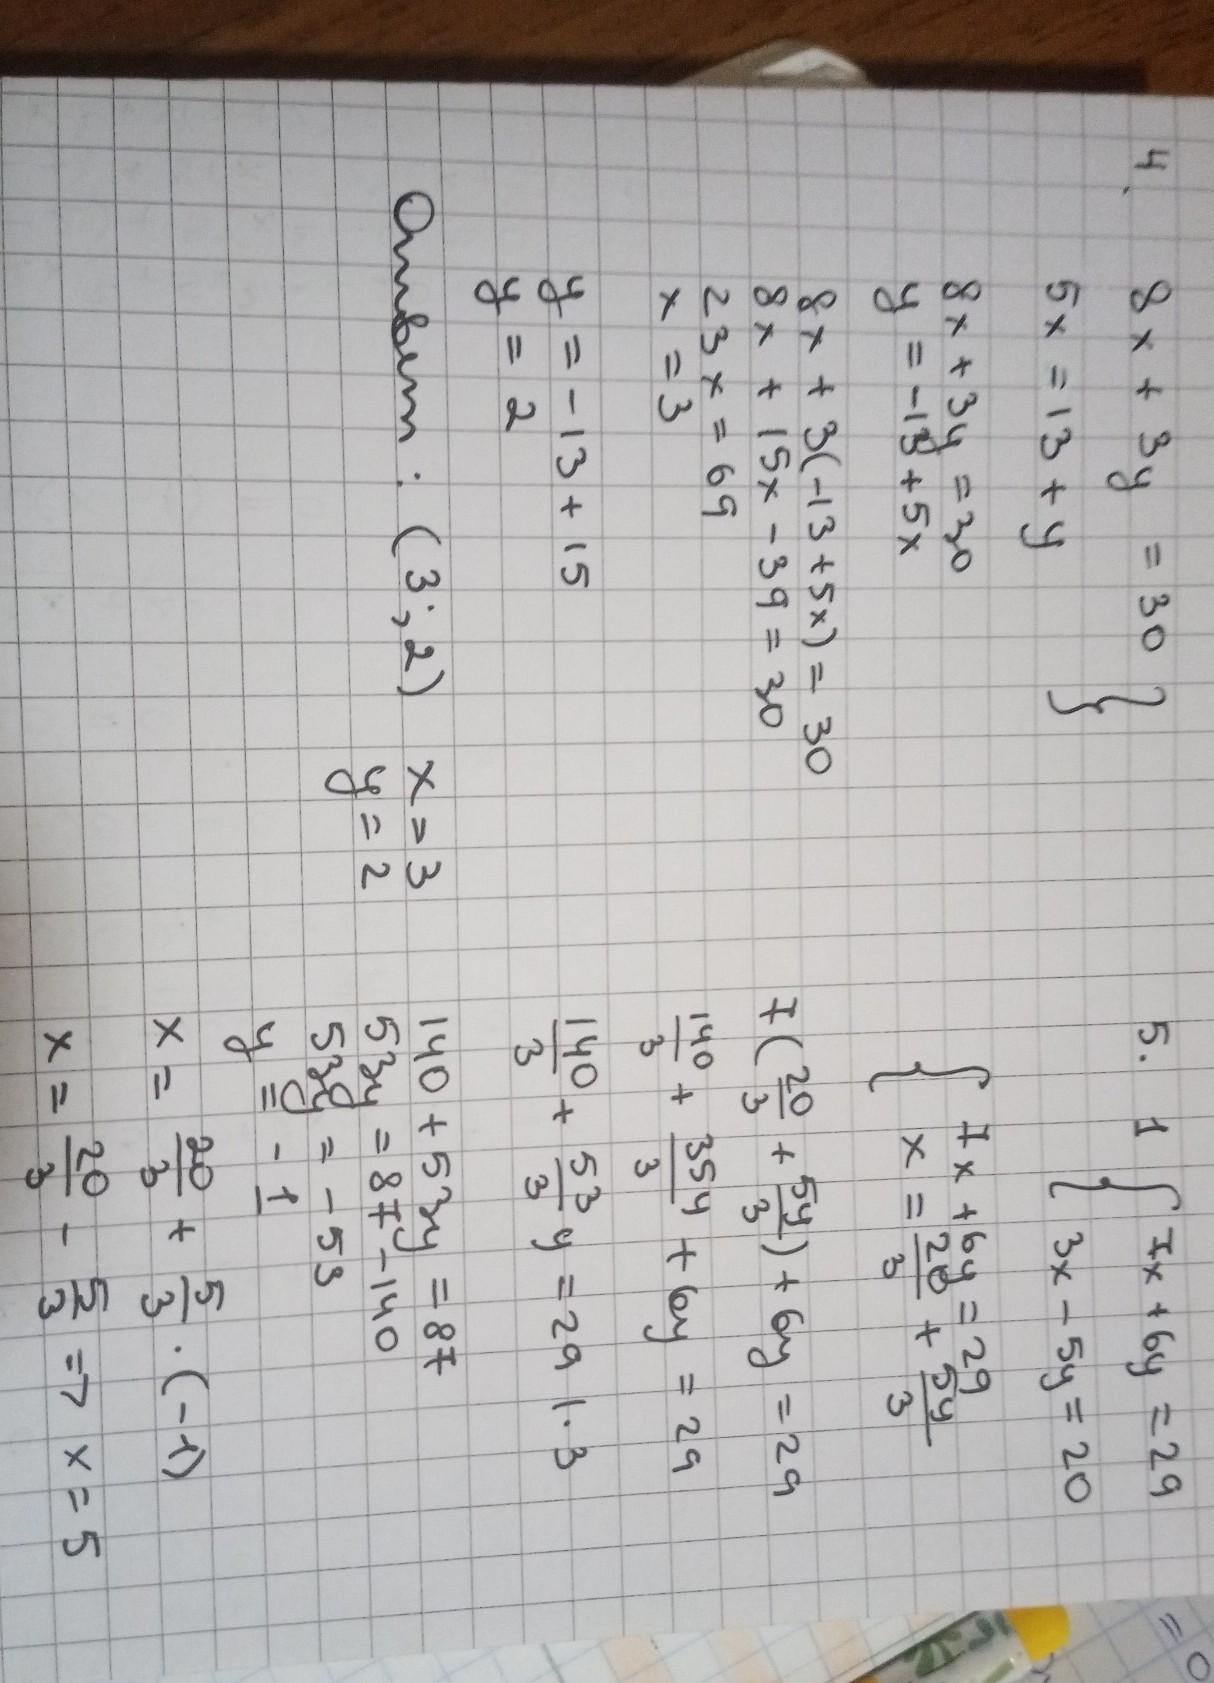 4.
8x + 3y = 30 }
5x = 13 + y
8x + 3y = 30
y = -13 + 5x
8x + 3(-13 + 5x) = 30
8x + 15x - 39 = 30
23x = 69
x = 3
y = -13 + 15
y = 2
Ответ: (3; 2) x = 3
y = 2
5. 1 { 7x + 6y = 29
3x - 5y = 20
{ 7x + 6y = 29
x = 20/3 + 5y/3
7(20/3 + 5y/3) + 6y = 29
140/3 + 35y/3 + 6y = 29
140/3 + 53/3 y = 29 | · 3
140 + 53y = 87
53y = 87 - 140
53y = -53
y = -1
x = 20/3 + 5/3 · (-1)
x = 20/3 - 5/3 => x = 5
= 0